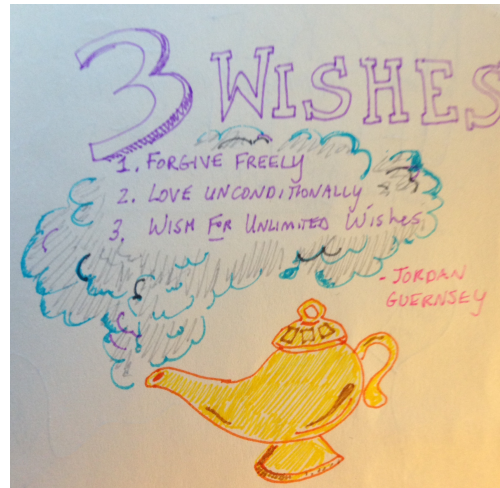 3 WISHES
1. FORGIVE FREELY
2. LOVE UNCONDITIONALLY
3. WISH FOR UNLIMITED WISHES
- JORDAN
GUERNSEY